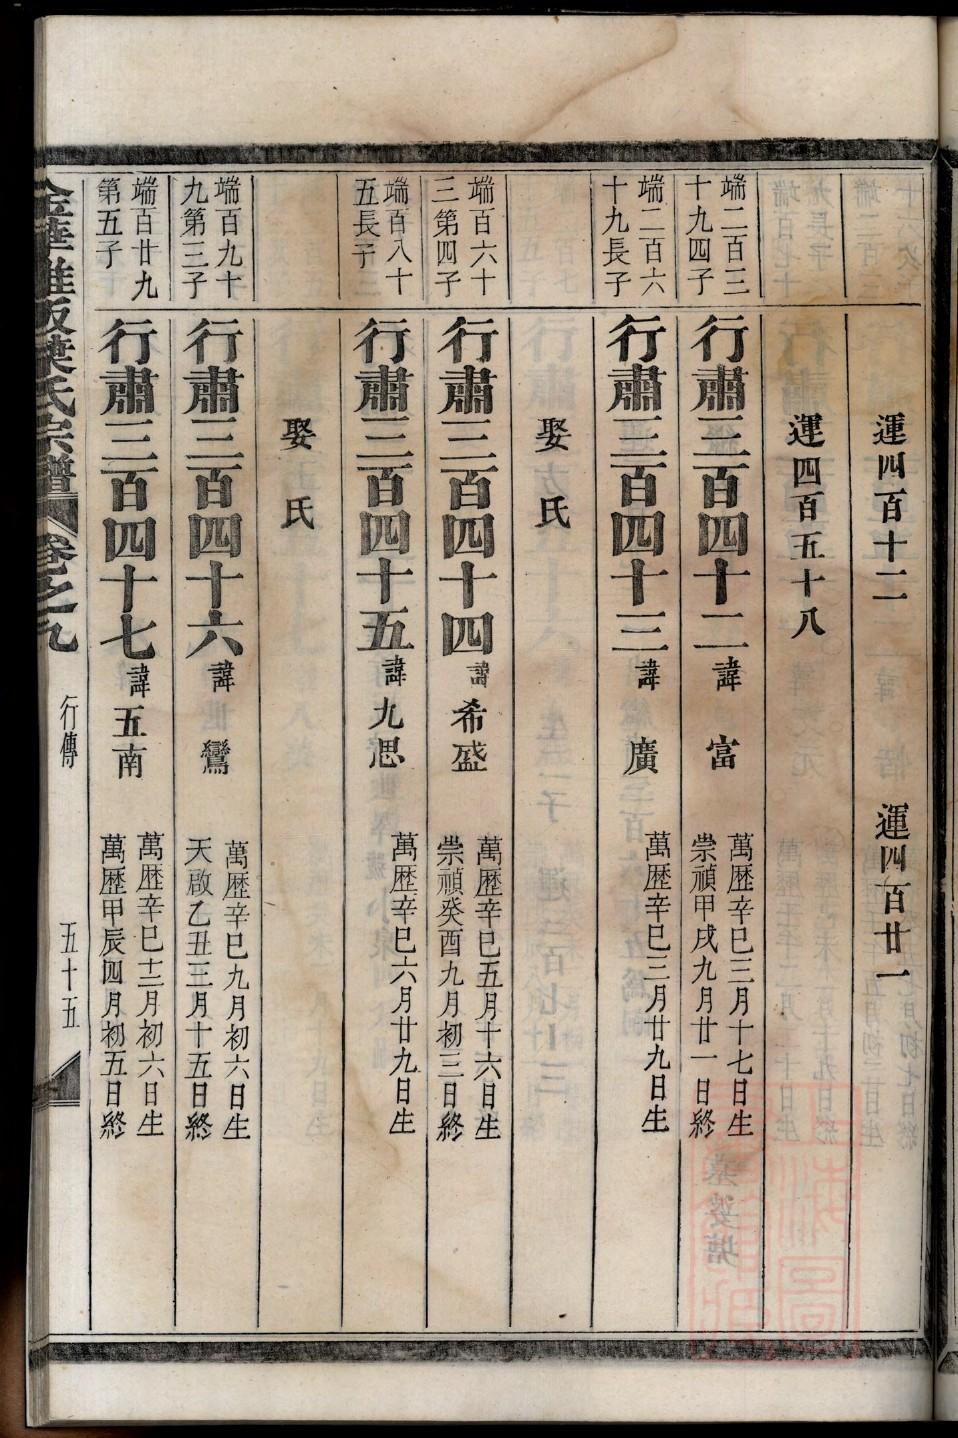 運四百十二　運四百廿一
運四百五十八
端二百三十九四子
行肅三百四十二諱富
萬歴辛巳三月十七日生
崇禎甲戌九月廿一日終
端二百六十九長子
行肅三百四十三諱廣
萬歴辛巳三月廿九日生
娶氏
端百六十三第四子
行肅三百四十四諱希盛
萬歴辛巳五月廿六日生
崇禎癸酉九月初三日終
端百八十五長子
行肅三百四十五諱九思
萬歴辛巳六月廿九日生
娶氏
端百九十九第三子
行肅三百四十六諱鸞
萬歴辛巳九月初六日生
天啟乙丑三月十五日終
端百廿九第五子
行肅三百四十七諱五南
萬歴辛巳十二月初六日生
萬歴甲辰四月初五日終
葉氏宗譜
卷之九
行傳
五十五